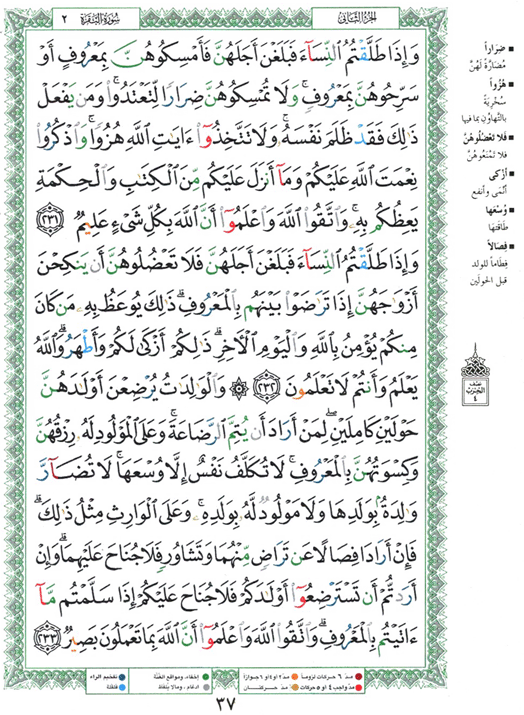 الجزء الثاني
سورة البقرة ٢
وَإِذَا طَلَّقْتُمُ ٱلنِّسَآءَ فَبَلَغْنَ أَجَلَهُنَّ فَأَمْسِكُوهُنَّ بِمَعْرُوفٍ أَوْ
سَرِّحُوهُنَّ بِمَعْرُوفٍ ۚ وَلَا تُمْسِكُوهُنَّ ضِرَارًا لِّتَعْتَدُوا۟ ۚ وَمَن يَفْعَلْ
ذَٰلِكَ فَقَدْ ظَلَمَ نَفْسَهُۥ ۚ وَلَا تَتَّخِذُوٓا۟ ءَايَٰتِ ٱللَّهِ هُزُوًا ۚ وَٱذْكُرُوا۟
نِعْمَتَ ٱللَّهِ عَلَيْكُمْ وَمَآ أَنزَلَ عَلَيْكُم مِّنَ ٱلْكِتَٰبِ وَٱلْحِكْمَةِ
يَعِظُكُم بِهِۦ ۚ وَٱتَّقُوا۟ ٱللَّهَ وَٱعْلَمُوٓا۟ أَنَّ ٱللَّهَ بِكُلِّ شَىْءٍ عَلِيمٌ ٢٣١
وَإِذَا طَلَّقْتُمُ ٱلنِّسَآءَ فَبَلَغْنَ أَجَلَهُنَّ فَلَا تَعْضُلُوهُنَّ أَن يَنكِحْنَ
أَزْوَٰجَهُنَّ إِذَا تَرَٰضَوْا۟ بَيْنَهُم بِٱلْمَعْرُوفِ ۗ ذَٰلِكَ يُوعَظُ بِهِۦ مَن كَانَ
مِنكُمْ يُؤْمِنُ بِٱللَّهِ وَٱلْيَوْمِ ٱلْـَٔاخِرِ ۗ ذَٰلِكُمْ أَزْكَىٰ لَكُمْ وَأَطْهَرُ ۗ وَٱللَّهُ
يَعْلَمُ وَأَنتُمْ لَا تَعْلَمُونَ ٢٣٢ ۞ وَٱلْوَٰلِدَٰتُ يُرْضِعْنَ أَوْلَٰدَهُنَّ
حَوْلَيْنِ كَامِلَيْنِ ۖ لِمَنْ أَرَادَ أَن يُتِمَّ ٱلرَّضَاعَةَ ۚ وَعَلَى ٱلْمَوْلُودِ لَهُۥ رِزْقُهُنَّ
وَكِسْوَتُهُنَّ بِٱلْمَعْرُوفِ ۚ لَا تُكَلَّفُ نَفْسٌ إِلَّا وُسْعَهَا ۚ لَا تُضَآرَّ
وَٰلِدَةٌۢ بِوَلَدِهَا وَلَا مَوْلُودٌ لَّهُۥ بِوَلَدِهِۦ ۚ وَعَلَى ٱلْوَارِثِ مِثْلُ ذَٰلِكَ ۗ
فَإِنْ أَرَادَا فِصَالًا عَن تَرَاضٍ مِّنْهُمَا وَتَشَاوُرٍ فَلَا جُنَاحَ عَلَيْهِمَا ۗ وَإِنْ
أَرَدتُّمْ أَن تَسْتَرْضِعُوٓا۟ أَوْلَٰدَكُمْ فَلَا جُنَاحَ عَلَيْكُمْ إِذَا سَلَّمْتُم مَّآ
ءَاتَيْتُم بِٱلْمَعْرُوفِ ۗ وَٱتَّقُوا۟ ٱللَّهَ وَٱعْلَمُوٓا۟ أَنَّ ٱللَّهَ بِمَا تَعْمَلُونَ بَصِيرٌ ٢٣٣
ضِرَاراً
مُضَارَّةً لَهُنَّ
هُزُواً
سُخْرِيَةً
بالتَّهاوُنِ بما فيها
فَلا تَعْضُلُوهُنَّ
فَلا تَمْنَعُوهُنَّ
أزْكَى
أنْمَى وأنفع
وُسْعَها
طاقتَها
فِصَالاً
فِطَاماً للولد
قبل الحولَين
نصف
الحزب
٤
مدّ ٦ حركات لزوماً
مدّ ٢ أو ٤ أو ٦ جوازاً
إخفاء، ومواقع الغُنَّة
تفخيم الراء
مدّ واجب ٤ أو ٥ حركات
مدّ حركتان
ادغام، ومالا يلفظ
قلقلة
٣٧